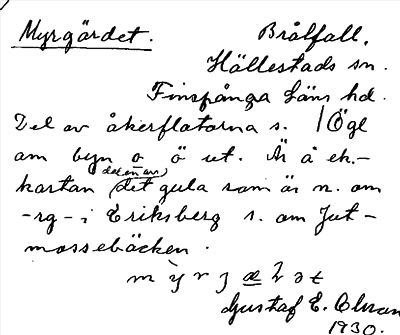 Myrgärdet.
Brålfall,
Hällestads sn.
Finspånga läns hd.
Del av åkerflatorna s. /Ögl
om byn o ö ut. Är å ek.-
kartan (det gula som är n. om
del en av)
-rg- i Eriksberg s. om Jut-
mossebäcken.
Gustaf E. Olsson
1930.